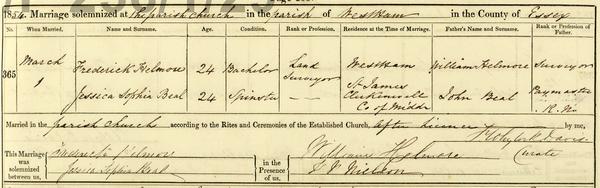 1854. Marriage solemnized at the parish church in the parish of Westham in the County of Essex
No. When Married. Name and Surname. Age. Condition. Rank or Profession. Residence at the Time of Marriage. Father's Name and Surname. Rank or Profession of Father.
365 March 1 Frederick Helmore 24 Bachelor Land Surveyor Westham William Helmore Surveyor
Jessica Sophia Beal 24 Spinster — — St James Clerkenwell Co. of Middx John Beal Paymaster R.N.
Married in the parish church according to the Rites and Ceremonies of the Established Church, after licence by me,
Davis Curate
This Marriage was solemnized between us, Frederick Helmore Jessica Sophia Beal in the Presence of us, William Helmore